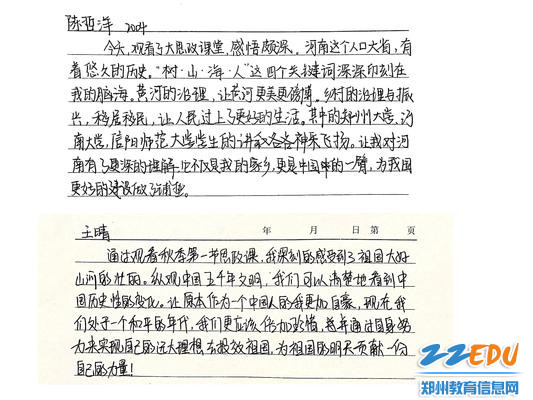 陈西洋 2004
今天,观看了大思政课堂,感悟颇深。河南这个人口大省,有
着悠久的历史。“树·山·海·人”这四个关键词深深印刻在
我的脑海。黄河的治理,让黄河更美更磅礴。乡村的治理与振
兴,移居移民,让人民过上了更好的生活。其中的郑州大学、河
南大学,信阳师范大学学生的讲述各各神采飞扬。让我对河
南有了更深的理解,它不仅是我的家乡,更是中国的一臂,为我国
更好的建设做了铺垫。
王晴 年 月 日 第 页
通过观看秋季第一节思政课,我深刻的感受到了祖国大好
山河的壮丽。纵观中国五千年文明,我们可以清楚地看到中
国历史性的变化。让原本作为一个中国人的我更加自豪,现在我
们处于一个和平的年代,我们更应该倍加珍惜,并通过自身努
力来实现自己的远大理想去报效祖国,为祖国的明天贡献一份
自己的力量!
22EDU
郑州教育信息网